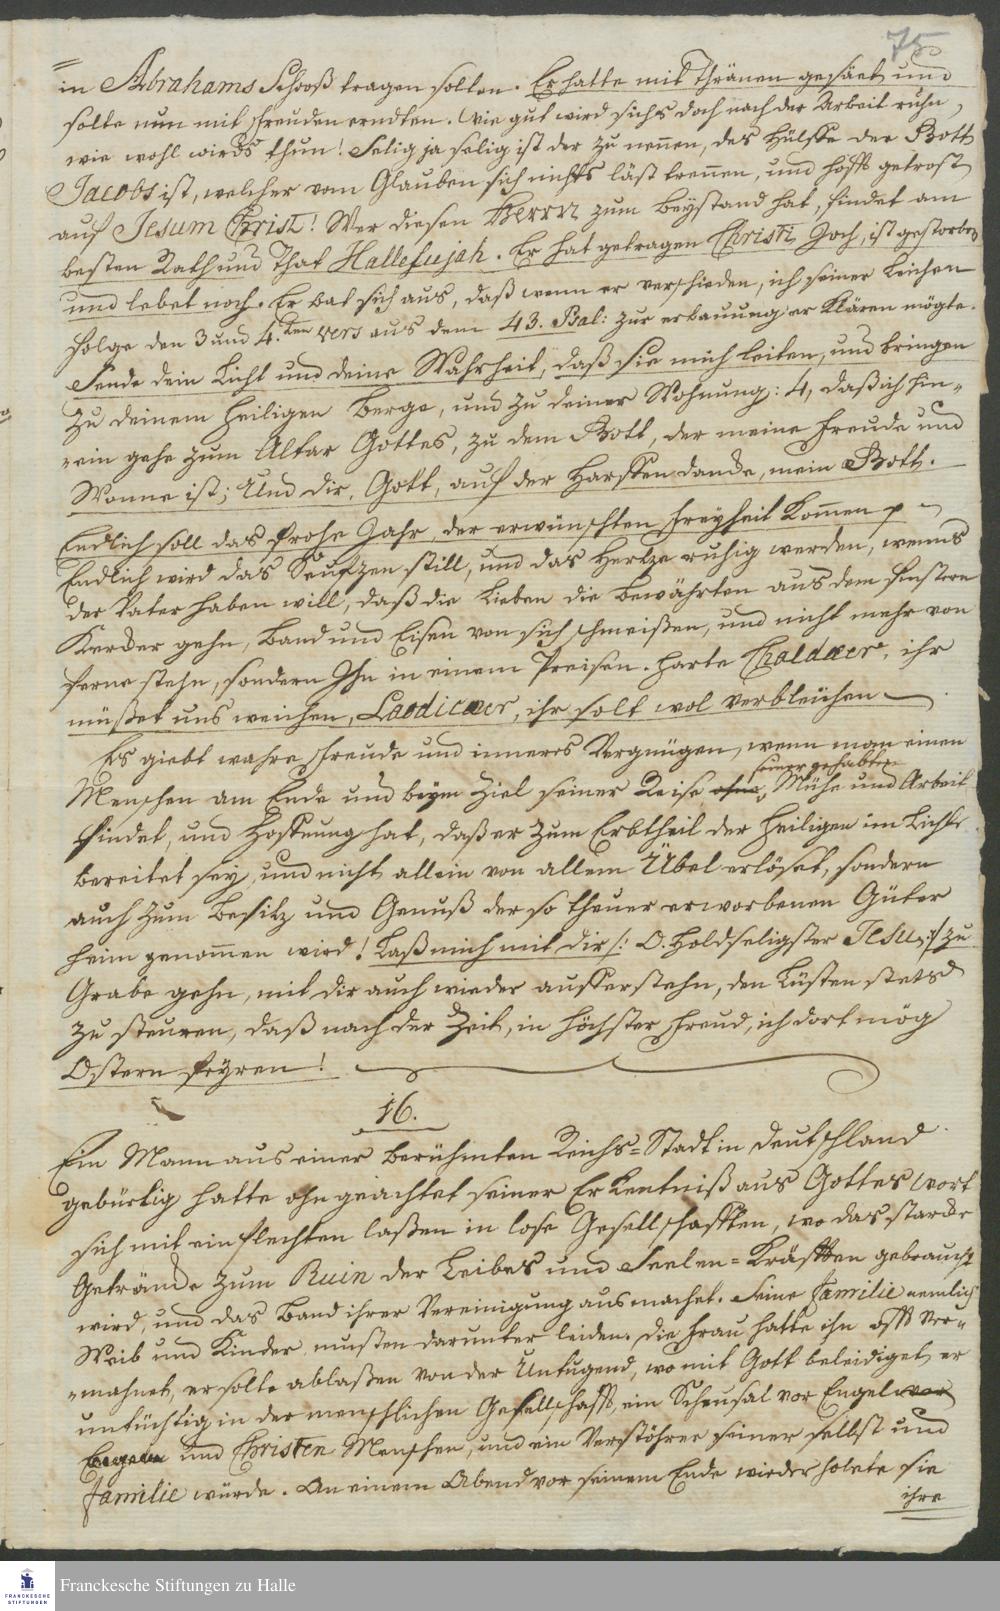 75
in Abrahams Schooß tragen solten. Er hatte mit Thränen gesäet und
solte nun mit Freuden erndten. Wie gut wird sichs doch nach der Arbeit ruhn,
wie wohl wirds thun! Selig ja selig ist der zu nennen, des Hülffe der Gott
Jacobs ist, welcher vom Glauben sich nichts läst trennen, und hofft getrost
auf Jesum Christ! Wer diesen Herrn zum Beystand hat, findet am
besten Rath und That Hallelujah. Er hat getragen Christi Joch, ist gestorben
und lebet noch. Er bat sich aus, daß wenn er verschieden, ich seiner Leichen
folge den 3 und 4.ten Vers aus dem 43. Psal: zur erbauung erklären mögte.
Sende dein Licht und deine Wahrheit, daß sie mich leiten, und bringen
zu deinem heiligen Berge, und zu deiner Wohnung: 4, daß ich hin=
=ein gehe zum Altar Gottes, zu dem Gott, der meine Freude und
Wonne ist; Und dir, Gott, auf der Harffen dancke, mein Gott.
Endlich soll das frohe Jahr, der erwünschten Freyheit kommen p
Endlich wird das Seufzen still, und das Hertze ruhig werden, wenns
der Vater haben will, daß die Lieben die bewährten aus dem finstern
Kercker gehn, Band und Eisen von sich schmeißen, und nicht mehr von
ferne stehn, sondern Ihn in einem Preisen. Harte Chaldæer, ihr
müßet uns weichen, Laodicæer, ihr solt wol verbleichen
Es giebt wahre Freude und inneres Vergnügen, wenn man einen
Menschen am Ende und beym Ziel seiner Reise, ohne seiner gehabten Mühe und Arbeit
findet, und Hoffnung hat, daß er zum Erbtheil der Heiligen im Licht
bereitet sey, und nicht allein von allem Übel erlöset, sondern
auch zum Besitz und Genuß der so theuer erworbenen Güter
heim genommen wird! Laß mich mit dir /: O. Holdseligster Jesu :/ zu
Grabe gehn, mit dir auch wieder aufferstehn, den Lüsten stets
zu steuren, daß nach der Zeit, in höchster Freud, ich dort mög
Ostern feyren!
16.
Ein Mann aus einer berühmten Reichs=Stadt in Deutschland
gebürtig hatte ohngeachtet seiner Erkentniß aus Gottes Wort
sich mit einflechten laßen in lose Gesellschafften, wo das starcke
Geträncke zum Ruin der Leibes und Seelen=Kräfften gebraucht
wird, und das Band ihrer Vereinigung ausmachet. Seine Familie nemlich
Weib und Kinder musten darunter leiden. Die Frau hatte ihn offt ver=
=mahnet, er solte ablaßen von der Untugend, wo mit Gott beleidiget, er
untüchtig in der menschlichen Gesellschafft, ein Scheusal vor Engel vor
Engeln und Christen Menschen, und ein Verstöhrer seiner selbst und
Familie würde. An einem Abend vor seinem Ende wiederholete sie
ihre
Franckesche Stiftungen zu Halle
FRANCKESCHE
STIFTUNGEN